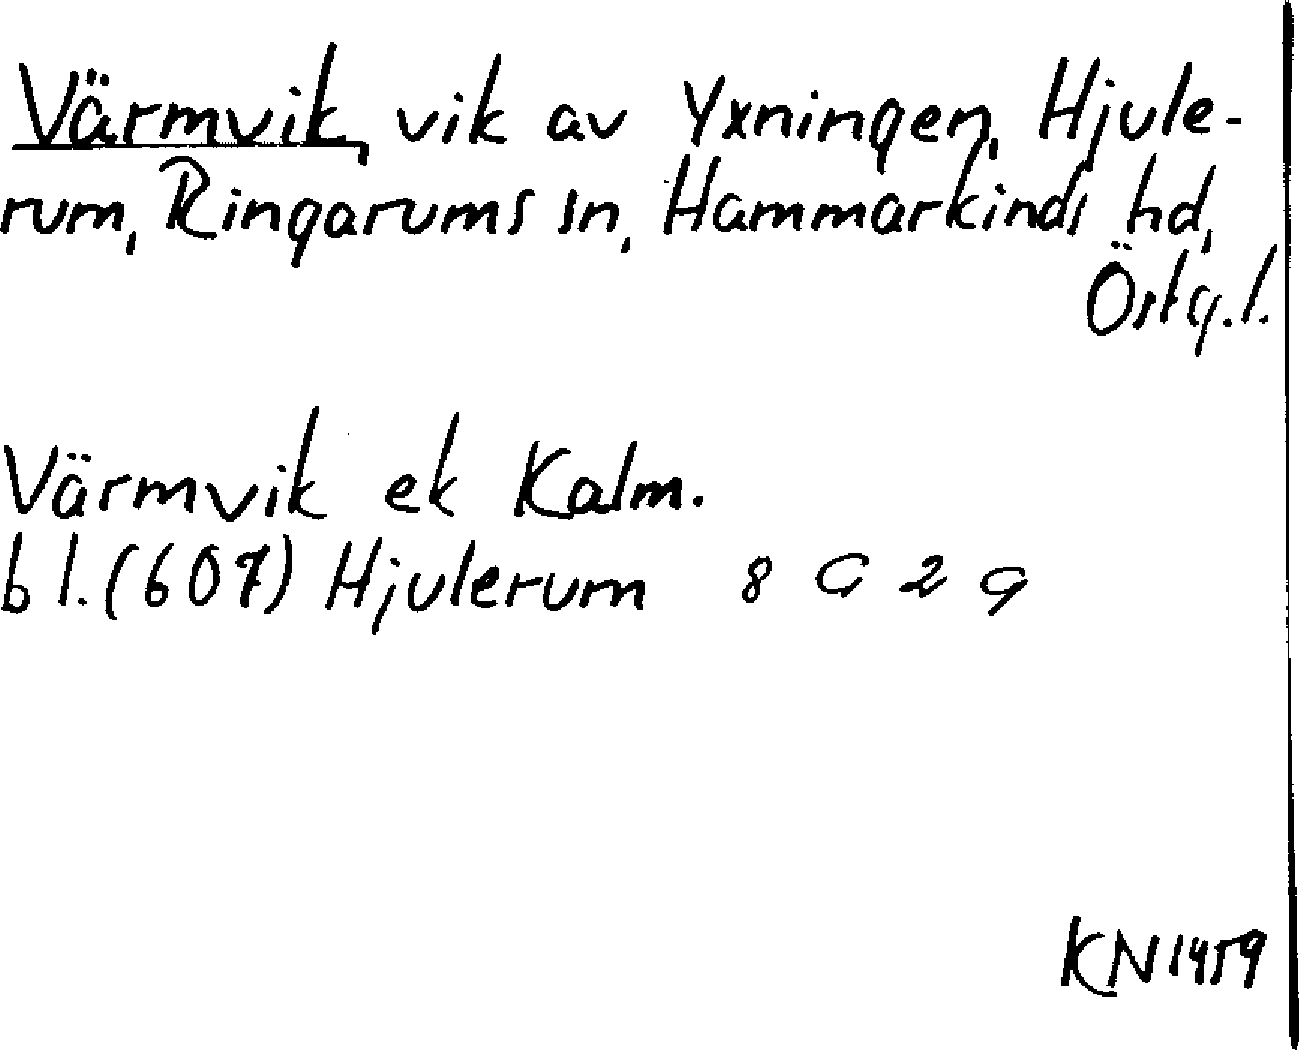 Värmvik, vik av Yxningen, Hjule-
rum, Ringarums sn, Hammarkinds hd,
Östg.l.
Värmvik ek Kalm.
bl. (607) Hjulerum 8 G 2 g
KN 1459